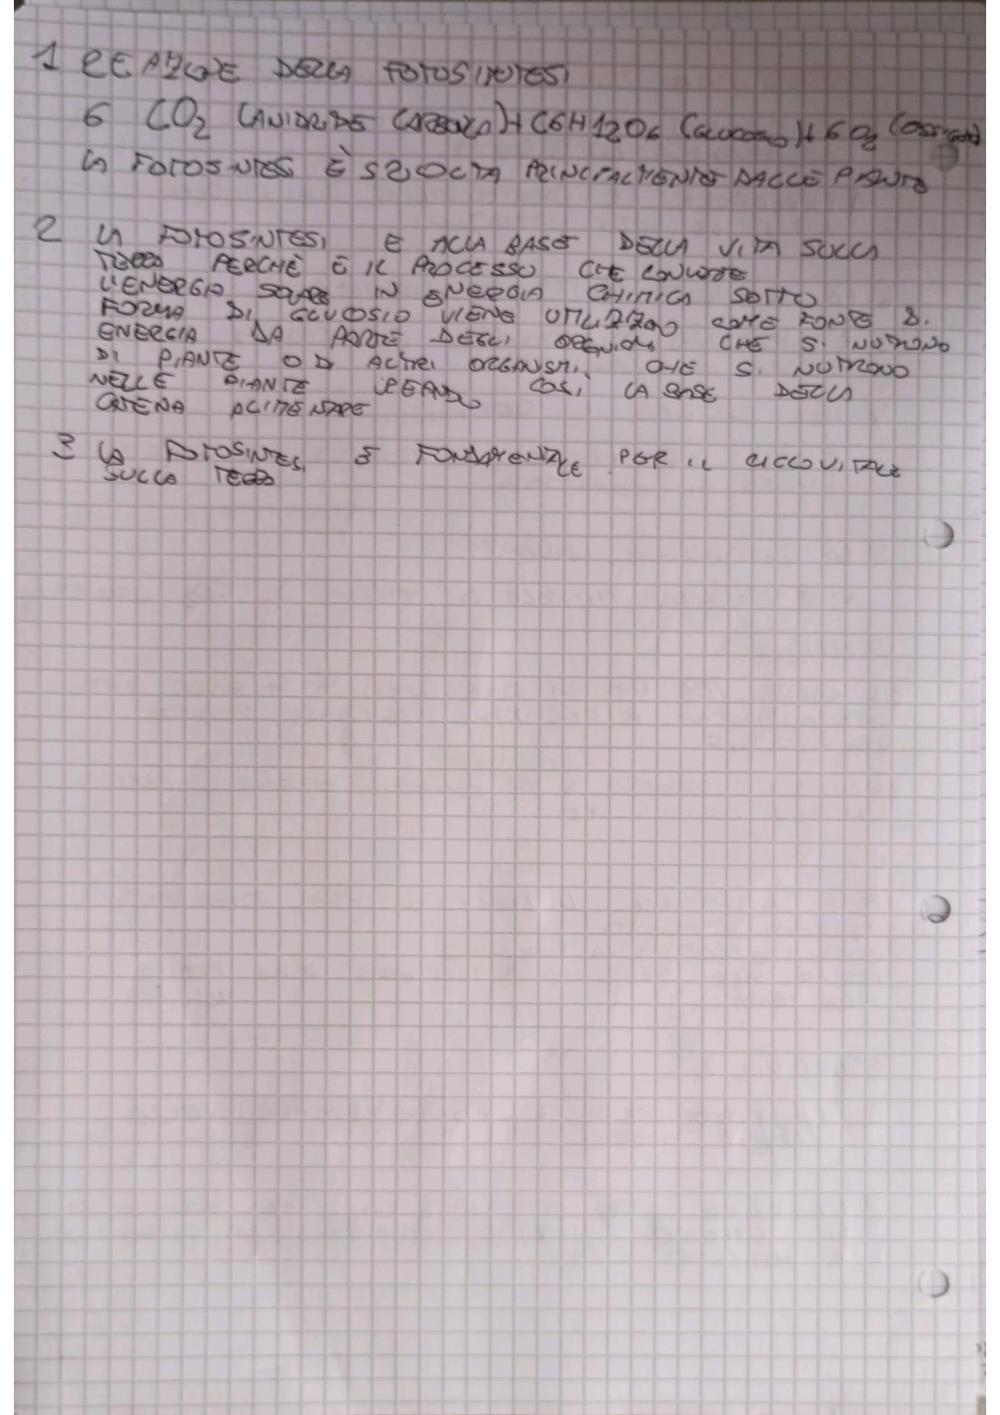 1 REAZIONE DELLA FOTOSINTESI
6 CO2 (ANIDRIDE CARBONICA)+C6H12O6 (GLUCOSIO)+6O2 (OSSIGENO)
LA FOTOSINTESI È SVOLTA PRINCIPALMENTE DALLE PIANTE
2 LA FOTOSINTESI E ALLA BASE DELLA VITA SULLA
TERRA PERCHÈ È IL PROCESSO CHE CONVERTE
L'ENERGIA SOLARE IN ENERGIA CHIMICA SOTTO
FORMA DI GLUCOSIO VIENE UTILIZZATO COME FONTE DI
ENERGIA DA PARTE DEGLI ORGANISMI CHE SI NUTRONO
DI PIANTE O DI ALTRI ORGANISMI CHE SI NUTRONO
NELLE PIANTE CREANDO COSI LA BASE DELLA
CATENA ALIMENTARE
3 LA FOTOSINTESI È FONDAMENTALE PER IL CICLO VITALE
SULLA TERRA